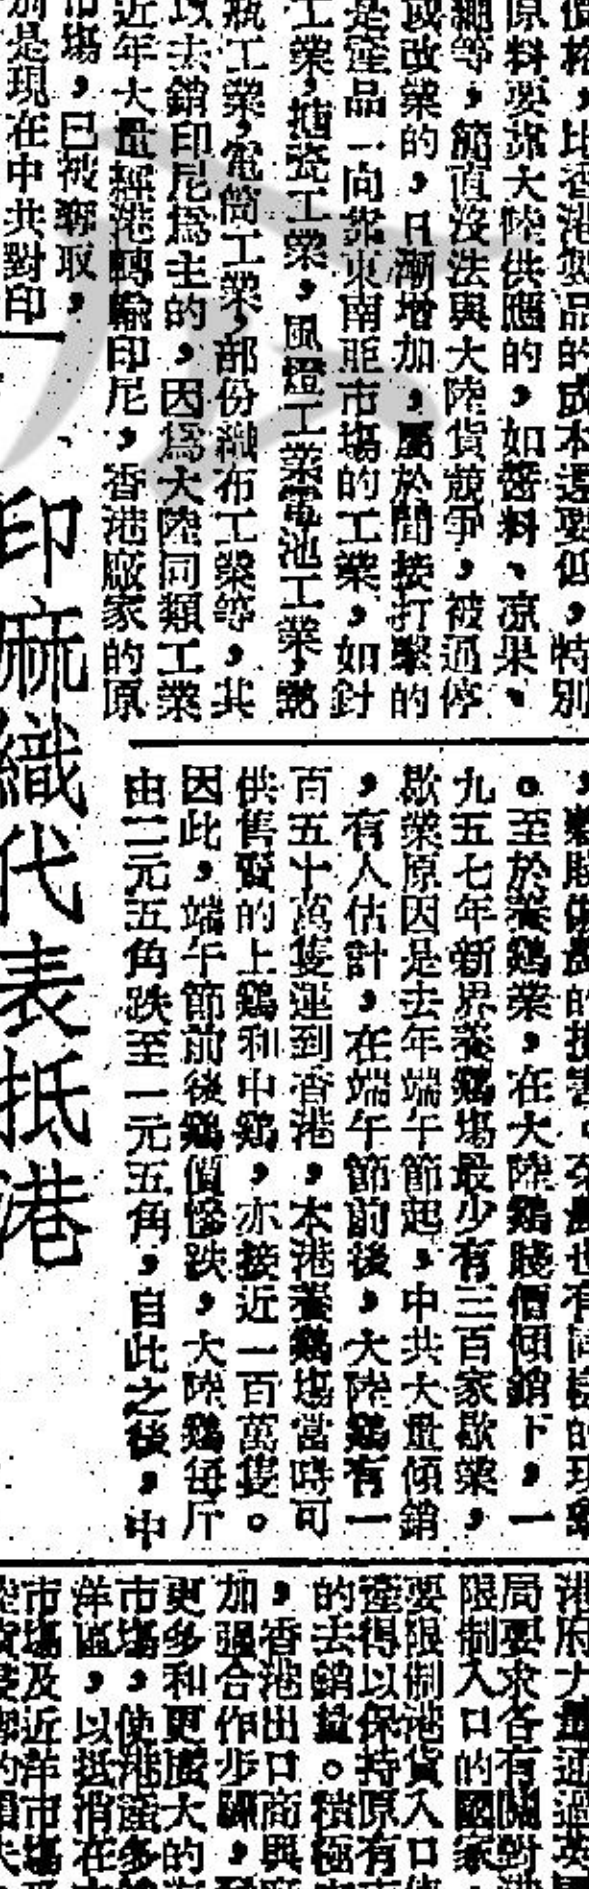 價格，比香港製品的成本還要低，特別
原料要靠大陸供應的，如醬料、凉果、
等，簡直沒法與大陸貨競爭，被逼停
或改業的，日漸增加，屬於間接打擊的
是產品一向靠東南亞市塲的工業，如針
工業，搪瓷工業，風燈工業電池工業，熱
瓶工業，電筒工業，部份織布工業等，其
以去銷印尼爲主的，因爲大陸同類工業
近年大量經港轉輸印尼，香港廠家的原
市塲，已被奪取，
別是現在中共對印
。至於養鷄業，在大陸鷄賤價傾銷下，一
九五七年新界養鷄塲最少有三百家歇業，
歇業原因是去年端午節起，中共大量傾銷
，有人估計，在端午節前後，大陸鷄有一
百五十萬隻運到香港，本港養鷄塲當時可
供售賣的上鷄和中鷄，亦接近一百萬隻。
因此，端午節前後鷄價慘跌，大陸鷄每斤
由二元五角跌至一元五角，自此之後，中
印麻織代表抵港
港府力量通過英
局要求各有關對港
限制入口的國家
要限制港貨入口
產得以保持原有
的去銷量。積極
，香港出口商與
加强合作步驟，
更多和更廣大的
市塲，使港產多
洋區，以抵消在
市塲及近洋市塲